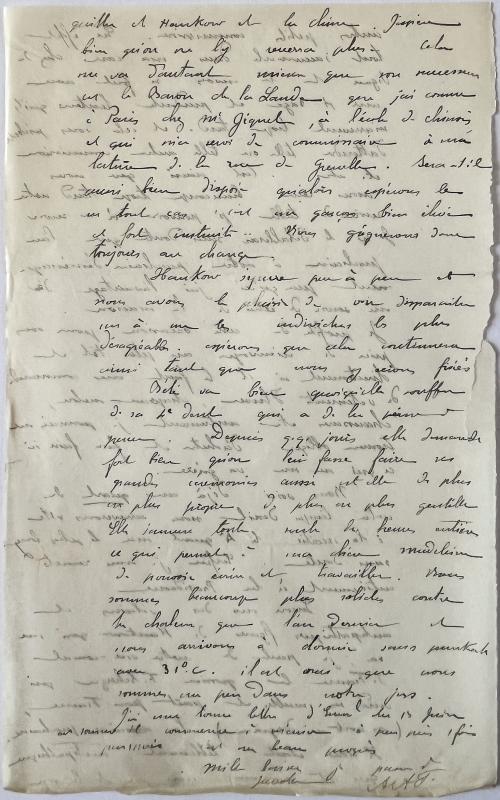 quitter et Hankow et la chine J'espère
bien qu'on ne l'y reverra plus. Cela
me va d'autant mieux que son successeur
est le Baron de la Lande que j'ai connu
à Paris chez Mr Giquel à l'école de chinois
et qui m'a servi de commissaire à
de la rue de Grenelle. Sera-t-il
aussi bien disposé qu'alors espérons le
en tout cas c'est un garçon bien élevé
et fort instruit .. Nous gagnerons donc
toujours au change
Hankow s'épure peu à peu et
nous avons le plaisir de voir disparaitre
un à un les individus les plus
désagréables. espérons que cela continuera
ainsi tant que nous y serons fixés
Bébé va bien quoiqu'elle souffre
de sa 4e dent qui a de la peine à
percer. Depuis q.q. jours elle demande
fort bien qu'on lui fasse faire ses
grandes cérémonies aussi est elle de plus
en plus propre & de plus en plus gentille
Elle s'amuse toute seule des heures entières
ce qui permet à ma chère Madeleine
de pouvoir écrire et travailler. Nous
sommes beaucoup plus solides contre
la chaleur que l'an dernier et
nous arrivons à dormir sans punkah
avec 31° C. il est vrai que nous
sommes un peu dans notre jus.
J'ai une bonne lettre d' du 13 Juin
à peu près 1 fois
c'est un beau progrès
mille